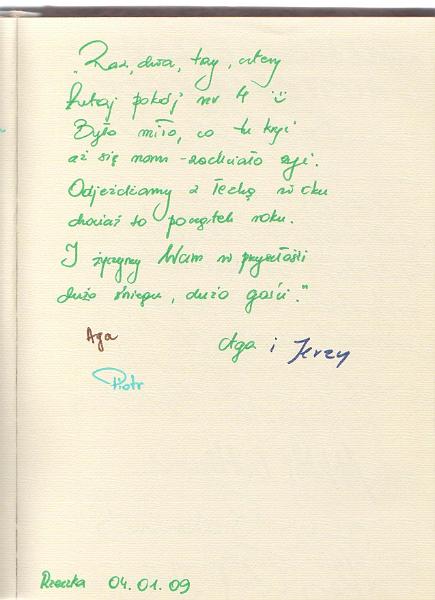 "Raz, dwa, trzy, cztery
tutaj pokój nr 4 :)
Było miło, co tu kryć
aż się nam zachciało żyć.
Odjeżdżamy z łezką w oku
chociaż to początek roku.
I życzymy Wam w przyszłości
dużo śniegu, dużo gości."
Aga Aga i Jerzy
Piotr
Rzeczka 04.01.09